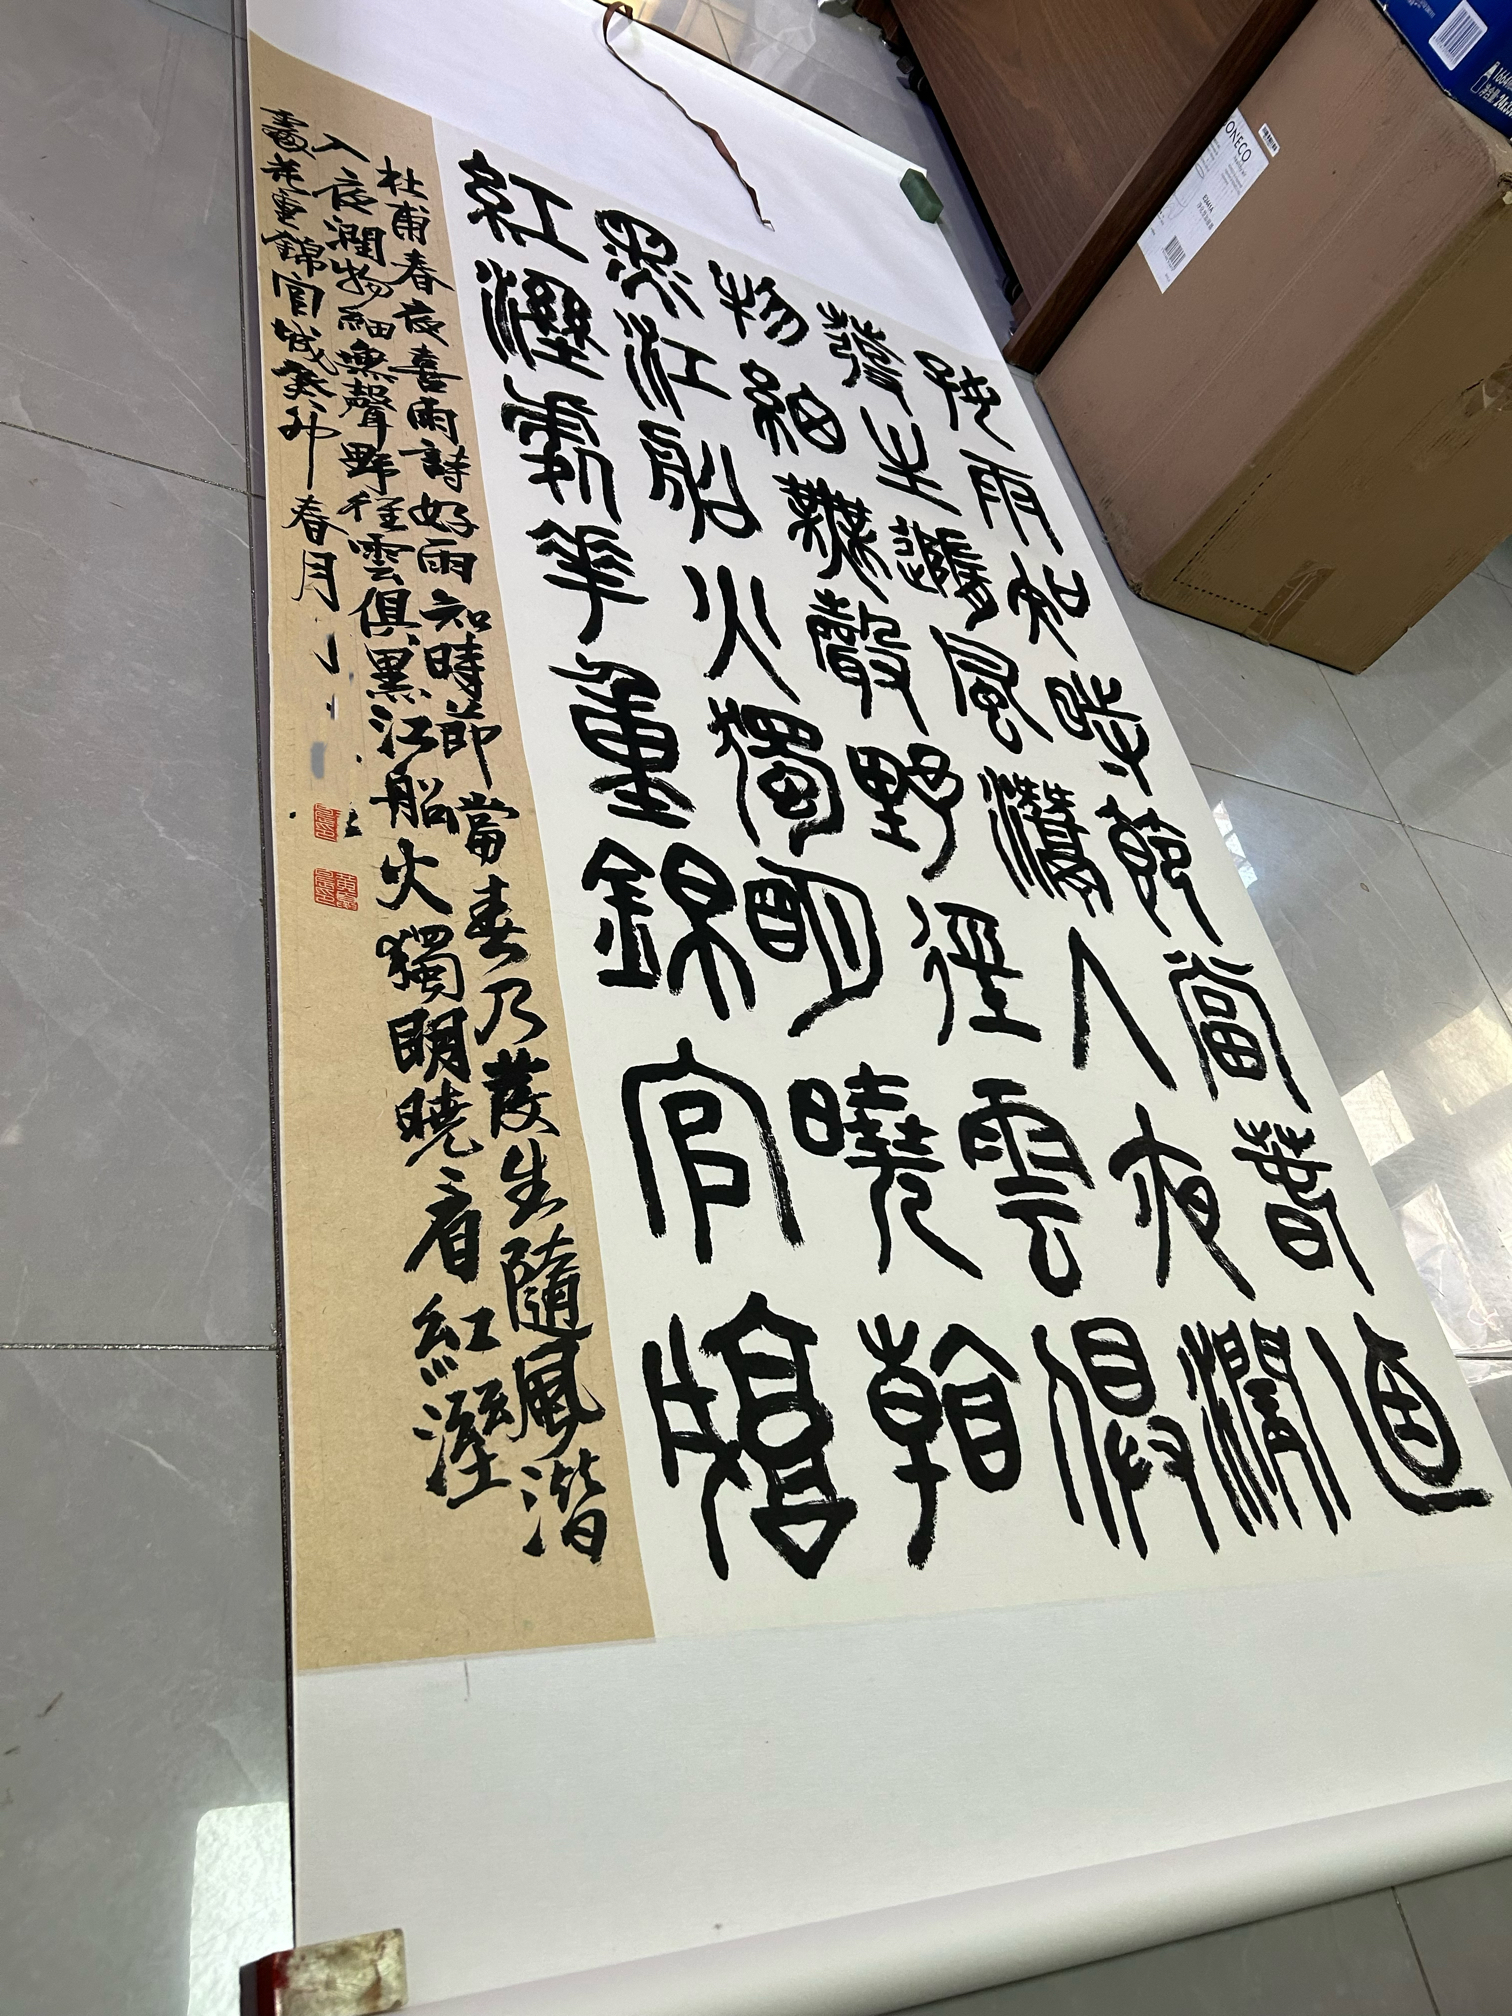 好雨知時節當春迺
發生隨風潛入夜潤
物細無聲野徑雲俱
黑江船火獨明曉看
紅溼處華重錦官城
杜甫春夜喜雨詩好雨知時節當春乃發生隨風潛
入夜潤物細無聲野徑雲俱黑江船火獨明曉看紅溼
處花重錦官城癸卯春月
ONECO